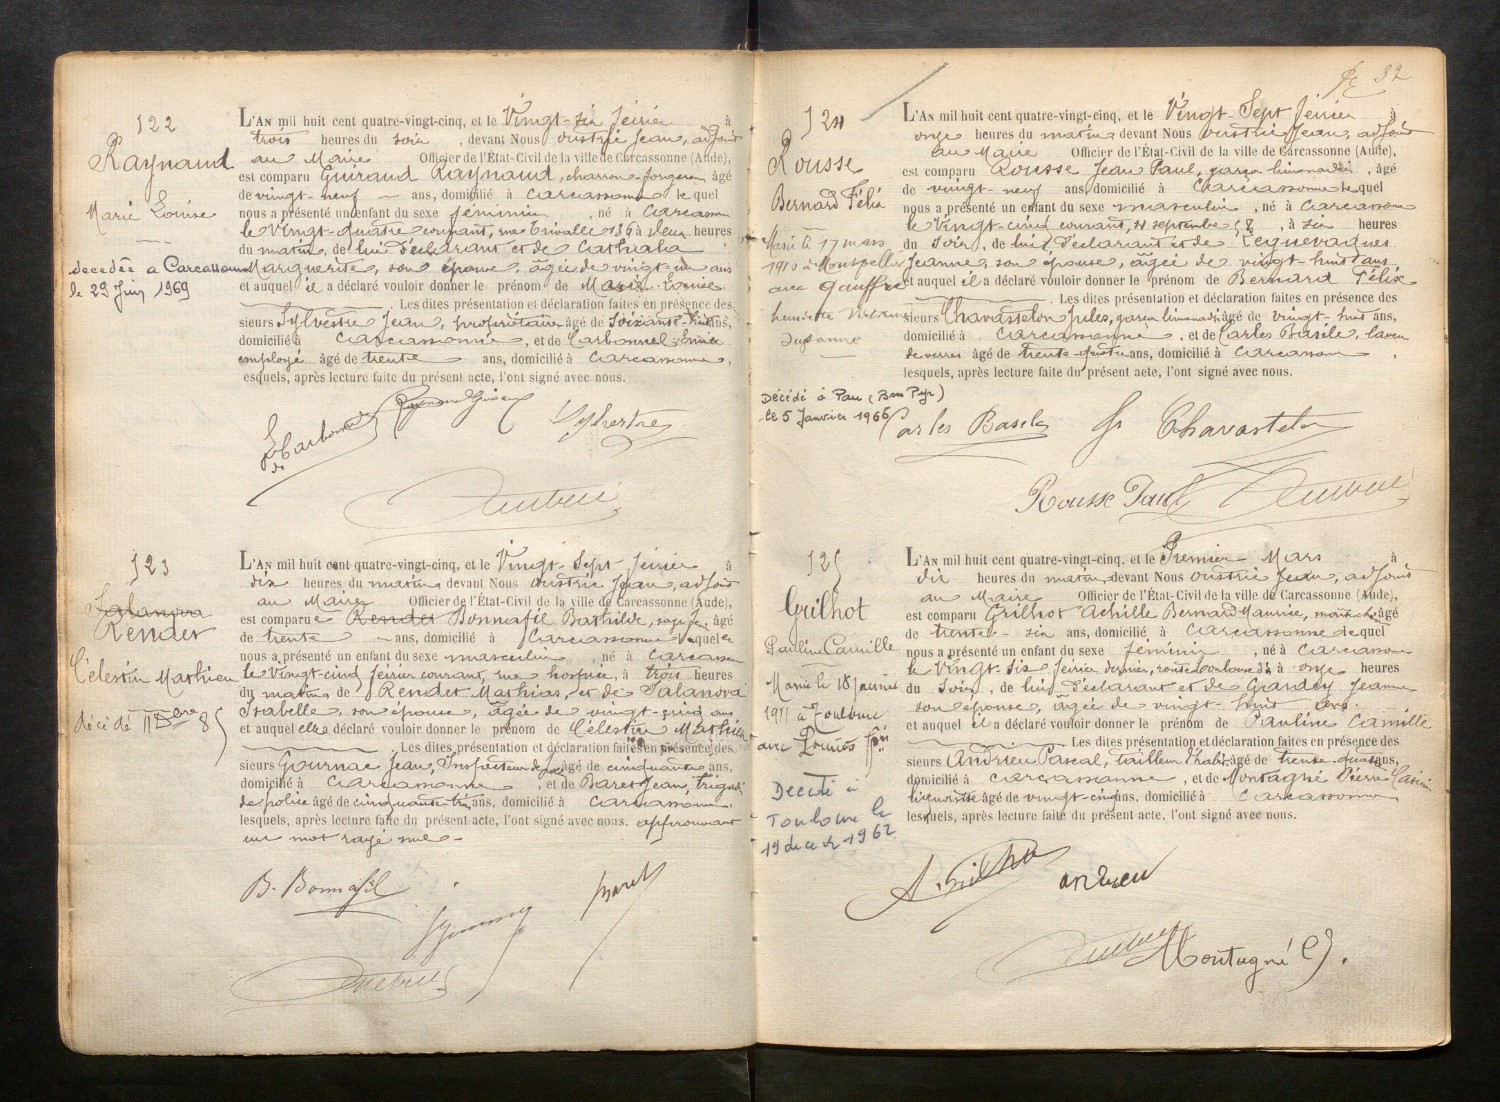 122
Raynaud
Marie Louise
décédée à Carcassonne
le 29 Juin 1969
L'AN mil huit cent quatre-vingt-cinq, et le Vingt-six février à
trois heures du soir, devant Nous Oustrie Jean, adjoint
au Maire Officier de l'État-Civil de la ville de Carcassonne (Aude),
est comparu Guiraud Raynaud, charron-forgeron, âgé
de vingt-neuf ans, domicilié à Carcassonne lequel
nous a présenté un enfant du sexe féminin, né à Carcassonne
le Vingt-quatre courant, rue Trivalle 136 à deux heures
du matin, de lui déclarant et de Cathala
Marguerite, son épouse, âgée de vingt-un ans
et auquel il a déclaré vouloir donner le prénom de Marie Louise
Les dites présentation et déclaration faites en présence des
sieurs Sylvestre Jean, propriétaire âgé de soixante-huit ans,
domicilié à Carcassonne, et de Carbonnel Emile
employé âgé de trente ans, domicilié à Carcassonne,
esquels, après lecture faite du présent acte, l'ont signé avec nous.
Raynaud Guiraud
Sylvestre
123
Salanova
Rendet
Célestin Mathieu
décédé 11 Xbre 85
L'AN mil huit cent quatre-vingt-cinq, et le Vingt-Sept février à
dix heures du matin, devant Nous Oustrie Jean, adjoint
au Maire Officier de l'État-Civil de la ville de Carcassonne (Aude),
est comparue Rendet Bonnafil Bathilde, sage fe âgé
de trente ans, domicilié à Carcassonne laquelle
nous a présenté un enfant du sexe masculin, né à Carcassonne
le Vingt-cinq février courant, rue hospice, à trois heures
du matin de Rendet Mathias, et de Salanova
Isabelle, son épouse, âgée de vingt-cinq ans
et auquel elle a déclaré vouloir donner le prénom de Célestin Mathieu
Les dites présentation et déclaration faites en présence des
sieurs Gournac Jean, Inspecteur de police âgé de cinquante ans,
domicilié à Carcassonne, et de Baret Jean, brigadier
de police âgé de cinquante-trois ans, domicilié à Carcassonne,
lesquels, après lecture faite du présent acte, l'ont signé avec nous. approuvant
un mot rayé nul
B. Bonnafil
Baret
fo 32
124
Rousse
Bernard Félix
Marié le 17 mars
1910 à Montpellier
avec Gauffre
Suzanne
Décédé à Pau (Bses Pyr)
le 5 Janvier 1966
L'AN mil huit cent quatre-vingt-cinq, et le Vingt-Sept février à
onze heures du matin, devant Nous Oustrie Jean, adjoint
au Maire Officier de l'État-Civil de la ville de Carcassonne (Aude),
est comparu Rousse Jean Paul, garçon limonadier, âgé
de vingt-neuf ans, domicilié à Carcassonne lequel
nous a présenté un enfant du sexe masculin, né à Carcassonne
le Vingt-cinq courant, 4 septembre, à six heures
du soir, de lui déclarant et de
Jeanne, son épouse, âgée de vingt-huit ans
et auquel il a déclaré vouloir donner le prénom de Bernard Félix
Les dites présentation et déclaration faites en présence des
sieurs Chavasselon Jules, garçon limonadier âgé de vingt-huit ans,
domicilié à Carcassonne, et de Carles Basile, laveur
de verres âgé de trente-quatre ans, domicilié à Carcassonne,
lesquels, après lecture faite du présent acte, l'ont signé avec nous.
Carles Basile
Rousse Paul
125
Grilhot
Pauline Camille
Marié le 18 janvier
1911 à Toulouse
avec
Décédé à
Toulouse le
19 1962
L'AN mil huit cent quatre-vingt-cinq, et le Premier Mars à
dix heures du matin, devant Nous Oustrie Jean, adjoint
au Maire Officier de l'État-Civil de la ville de Carcassonne (Aude),
est comparu Grilhot Achille Bernard Maurice, âgé
de trente-six ans, domicilié à Carcassonne lequel
nous a présenté un enfant du sexe féminin, né à Carcassonne
le Vingt-six février dernier, route toulouse à onze heures
du soir, de lui déclarant et de Grandey Jeanne
son épouse, âgée de vingt-huit ans.
et auquel il a déclaré vouloir donner le prénom de Pauline Camille
Les dites présentation et déclaration faites en présence des
sieurs Andrieu Pascal, tailleur d'habit, âgé de trente-quatre ans,
domicilié à Carcassonne, et de Montagné Pierre Casimir
liquoriste âgé de vingt-cinq ans, domicilié à Carcassonne
lesquels, après lecture faite du présent acte, l'ont signé avec nous.
A. Grilhot
andrieu
Montagné C.